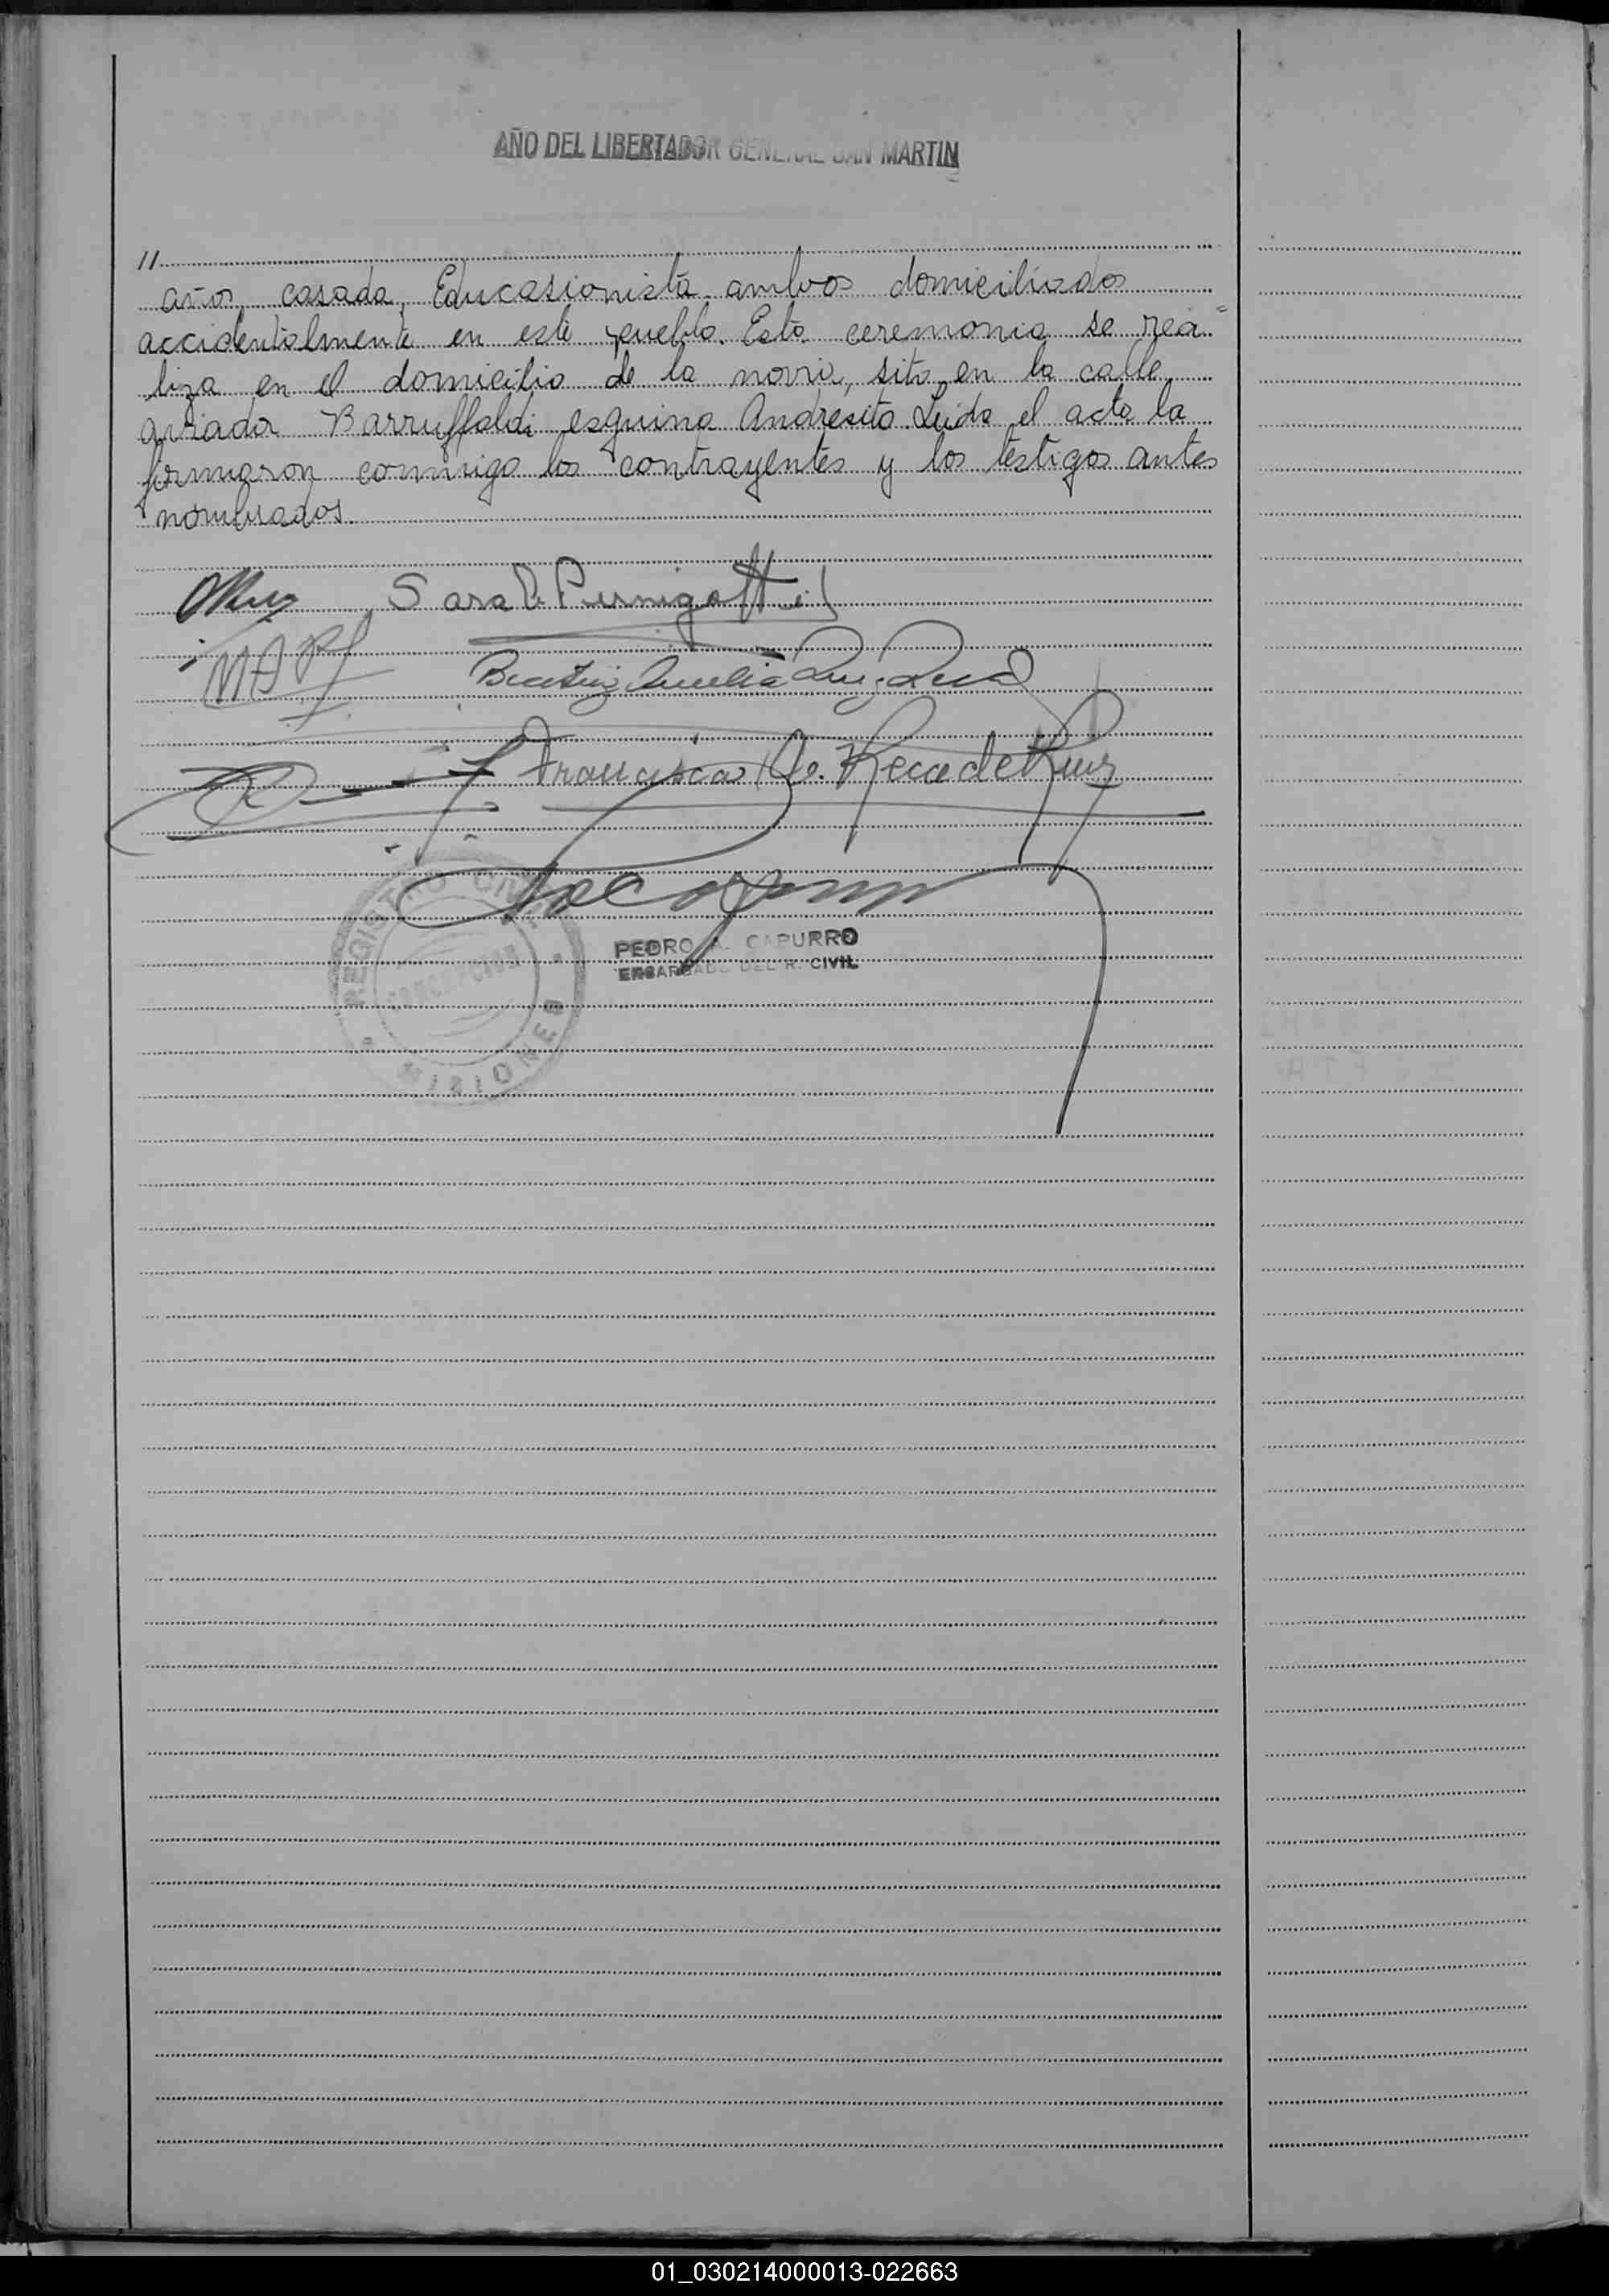 AÑO DEL LIBERTADOR GENERAL SAN MARTIN
//
años, casada, Educasionista, ambos domiciliados
accidentalmente en este pueblo. Esta ceremonia se rea=
liza en el domicilio de la novia, sito en la calle
aviador Barruffaldi esquina Andresito. Leida el acta la
firmaron conmigo los contrayentes y los testigos antes
nombrados.
Sara P. Pernigotti
Beatriz Amelia Ruiz Reca
Francisca Reca de Ruiz
REGISTRO CIVIL
CONCEPCION
MISIONES
PEDRO A. CAPURRO
ENCARGADO DEL R. CIVIL
01_030214000013-022663